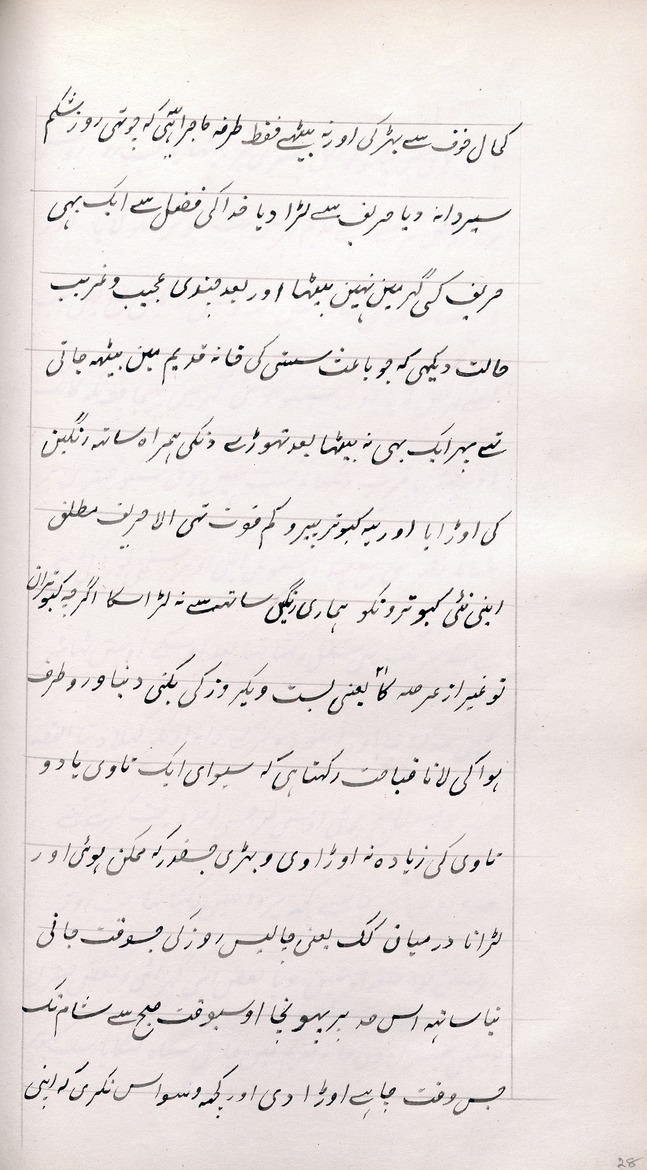 کمال خوف سے بہڑکی اور نہ بیٹہے فقط طرفہ ماجرا یہی کہ چوتہی روز شکم
سیر دانہ دیا حریف سے لڑا دیا خدا کی فضل سے ایک بہی
حریف کی گہر مین نہین بیٹہا اور بعد چندی عجیب و غریب
حالت دیکہی کہ جو باعث سستی کی خانہ قدیم مین بیٹہہ جاتی
تہے پہر ایک بہی نہ بیٹہا بعد تہوڑے دنکی ہمراہ ساتہہ رنگین
کی اوڑایا اور یہ کبوتر پیر و کم قوت تہی الا حریف مطلق
اپنی نئی کبوترونکو ہماری رنگین ساتہہ سے نہ لڑا سکا اگرچہ کبوتران
نو غیر از عرصہ ۲۱ کا یعنی بست و یکروز کی یکنی دینا اور طرف
ہوا کی لانا قباحت رکہتا ہی کہ سوای ایک تاوی یا دو
تاوی کی زیادہ نہ اوڑاوی و بہڑی جسقدر کہ ممکن ہوئی اور
لڑانا درمیان کے یعنی چالیس روز کی جسوقت جانی
نیا ساتہہ اس حد پر پہونچا اوسیوقت صبح سے شام تک
جس وقت چاہے اوڑا دی اور کچہہ وسواس نکری کہ اپنی
28